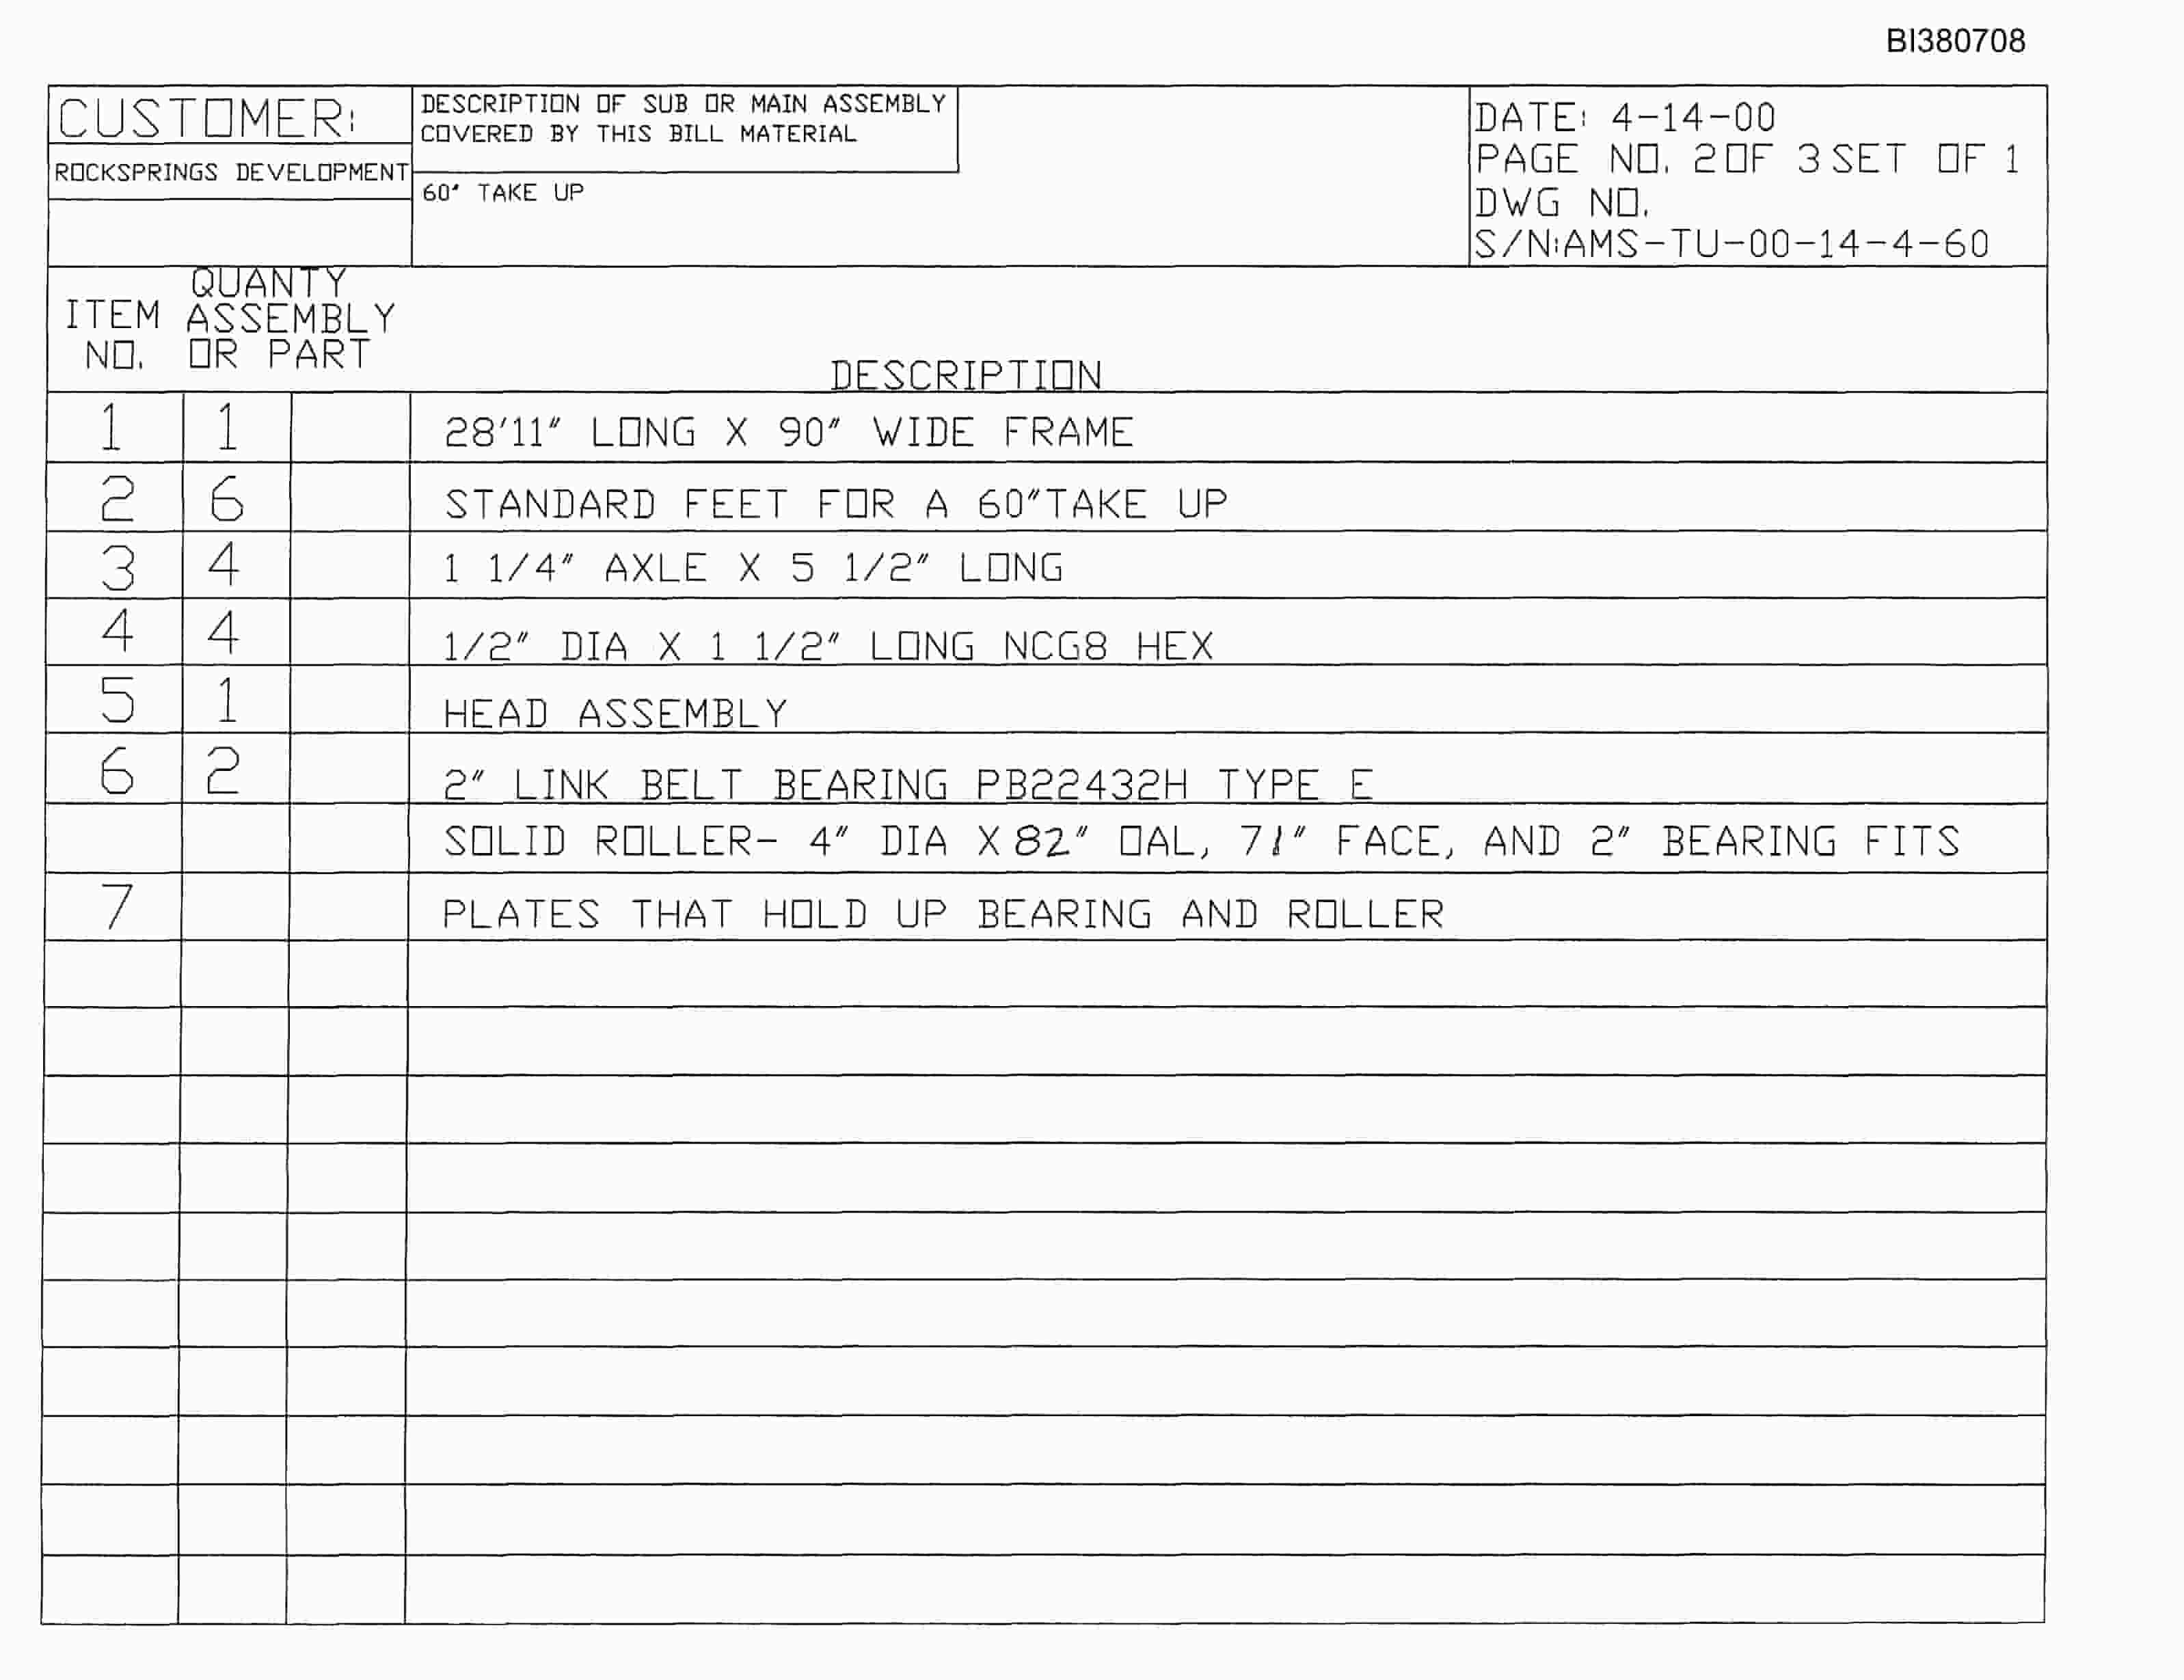 BI380708
CUSTOMER:
ROCKSPRINGS DEVELOPMENT
DESCRIPTION OF SUB OR MAIN ASSEMBLY
COVERED BY THIS BILL MATERIAL
60" TAKE UP
DATE: 4-14-00
PAGE NO. 2 OF 3 SET OF 1
DWG NO.
S/N:AMS-TU-00-14-4-60
ITEM NO.
QUANTY ASSEMBLY OR PART
DESCRIPTION
1 1 28'11" LONG X 90" WIDE FRAME
2 6 STANDARD FEET FOR A 60"TAKE UP
3 4 1 1/4" AXLE X 5 1/2" LONG
4 4 1/2" DIA X 1 1/2" LONG NCG8 HEX
5 1 HEAD ASSEMBLY
6 2 2" LINK BELT BEARING PB22432H TYPE E
SOLID ROLLER- 4" DIA X 82" OAL, 71" FACE, AND 2" BEARING FITS
7 PLATES THAT HOLD UP BEARING AND ROLLER